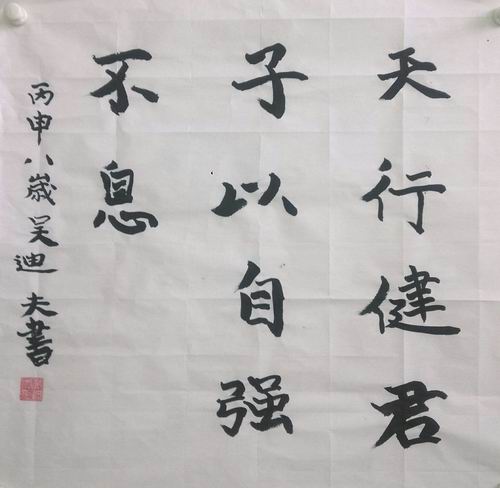 天行健君
子以自强
不息
丙申八歲吴迪夫書